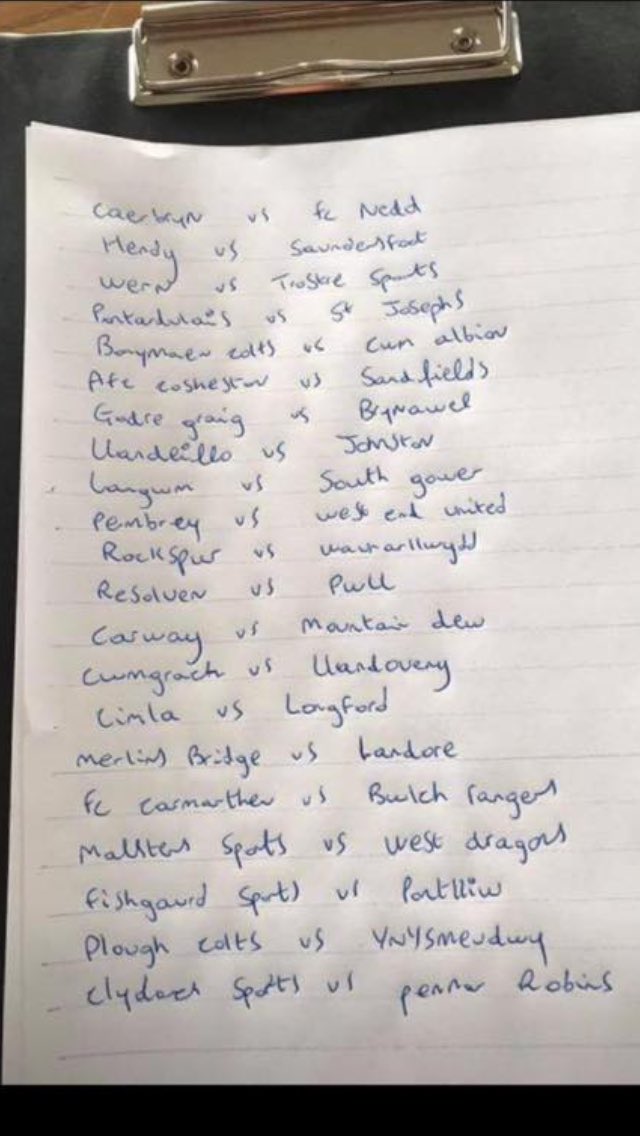 Caerbryn vs fc Nedd
Hendy vs Saundersfoot
Wern vs Trostre Sports
Pontardulais vs St Josephs
Bonymaen colts vs Cwm albion
Afc cosheston vs Sandfields
Godre graig vs Brynawel
Llandeillo vs Johnston
Langwm vs South gower
Pembrey vs west end united
Rockspur vs waunarllwydd
Resolven vs Pwll
Carway vs Mountain dew
Cwmgrach vs Llandovery
Cimla vs Longford
Merlins Bridge vs Landore
fc carmarthen vs Bwlch rangers
Malsters Spots vs west dragons
fishgaurd Sports vs Pontlliw
Plough colts vs YNYSmeudwy
Clydach Spots vs pennar Robins